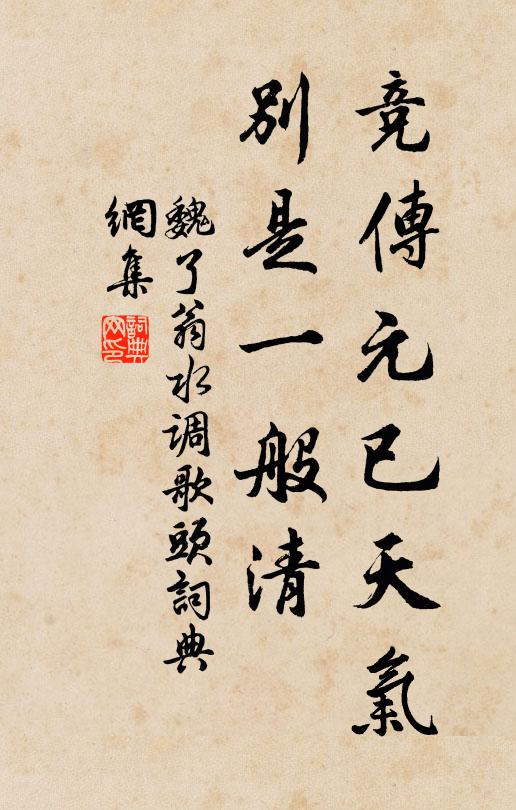 竞傳元已天氣
別是一般清
魏了翁水调歌頭詞典
網集
詞典
网印